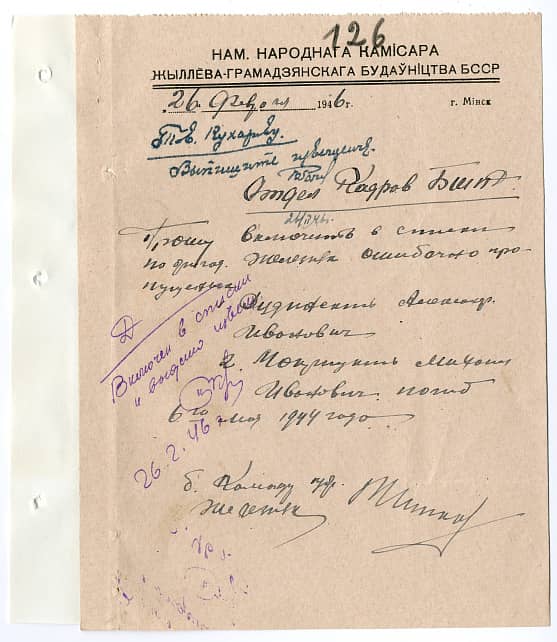 126
НАМ. НАРОДНАГА КАМІСАРА
ЖЫЛЛЁВА-ГРАМАДЗЯНСКАГА БУДАЎНІЦТВА БССР
26 февраля 1946 г. г. Мінск
Тов. Кухареву.
Выпишите извещение.
Отдел Кадров
Прошу включить в списки
по бригад. Железняк ошибочно про
пущенных
Александр
Иванович
2. Михаил
Иванович погиб
6го мая 1944 года.
Включен в списки
и выдано извещ
26.2.46
б. Команд
Железняк